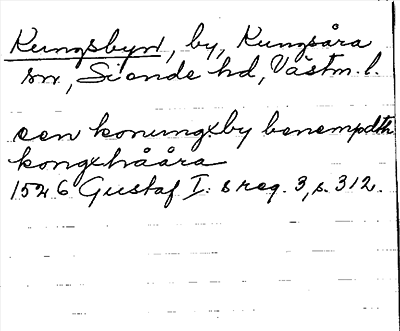 Kungsbyn, by, Kungsåra
sn, Siende hd, Västm. l.
een konungxby benempdth
kongxhååra
1526 Gustaf I:s reg. 3, s. 312.